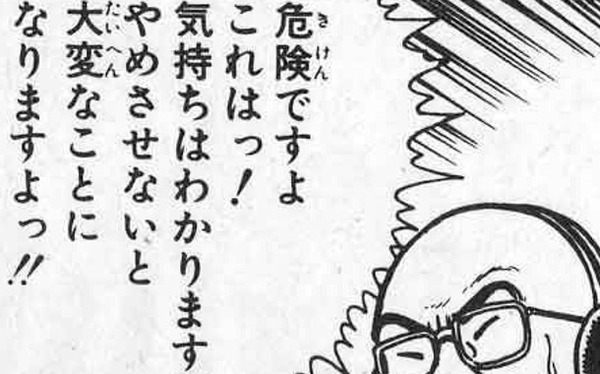 危険ですよ
これはっ！
気持ちはわかります
やめさせないと
大変なことに
なりますよっ!!
きけん
たいへん